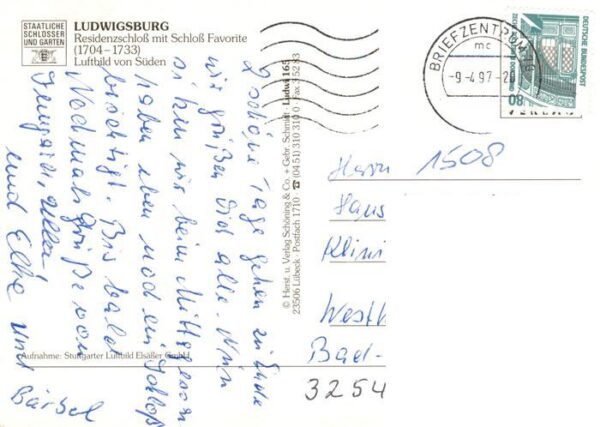 STAATLICHE
SCHLÖSSER
UND GÄRTEN
LUDWIGSBURG
Residenzschloß mit Schloß Favorite
(1704–1733)
Luftbild von Süden
2 schöne Tage gehen zu Ende
wir grüßen Dich alle. Nun
sitzen wir beim Mittagessen
haben eben noch ein Schloß
besichtigt. Bis bald
Nochmals Grüße von
Irmgard,
und Elke und
Bärbel
Aufnahme: Stuttgarter Luftbild Elsäßer GmbH
© Herst. u. Verlag Schöning & Co. + Gebr. Schmidt · Ludwi 165
23506 Lübeck · Postfach 1710 · ☎ (04 51) 310 310 · Fax 3 52 83
BRIEFZENTRUM
mc
-9-4.97-
DEUTSCHE BUNDESPOST
80
Herrn 1508
Hans
Klini
Westk
Bad-
3254